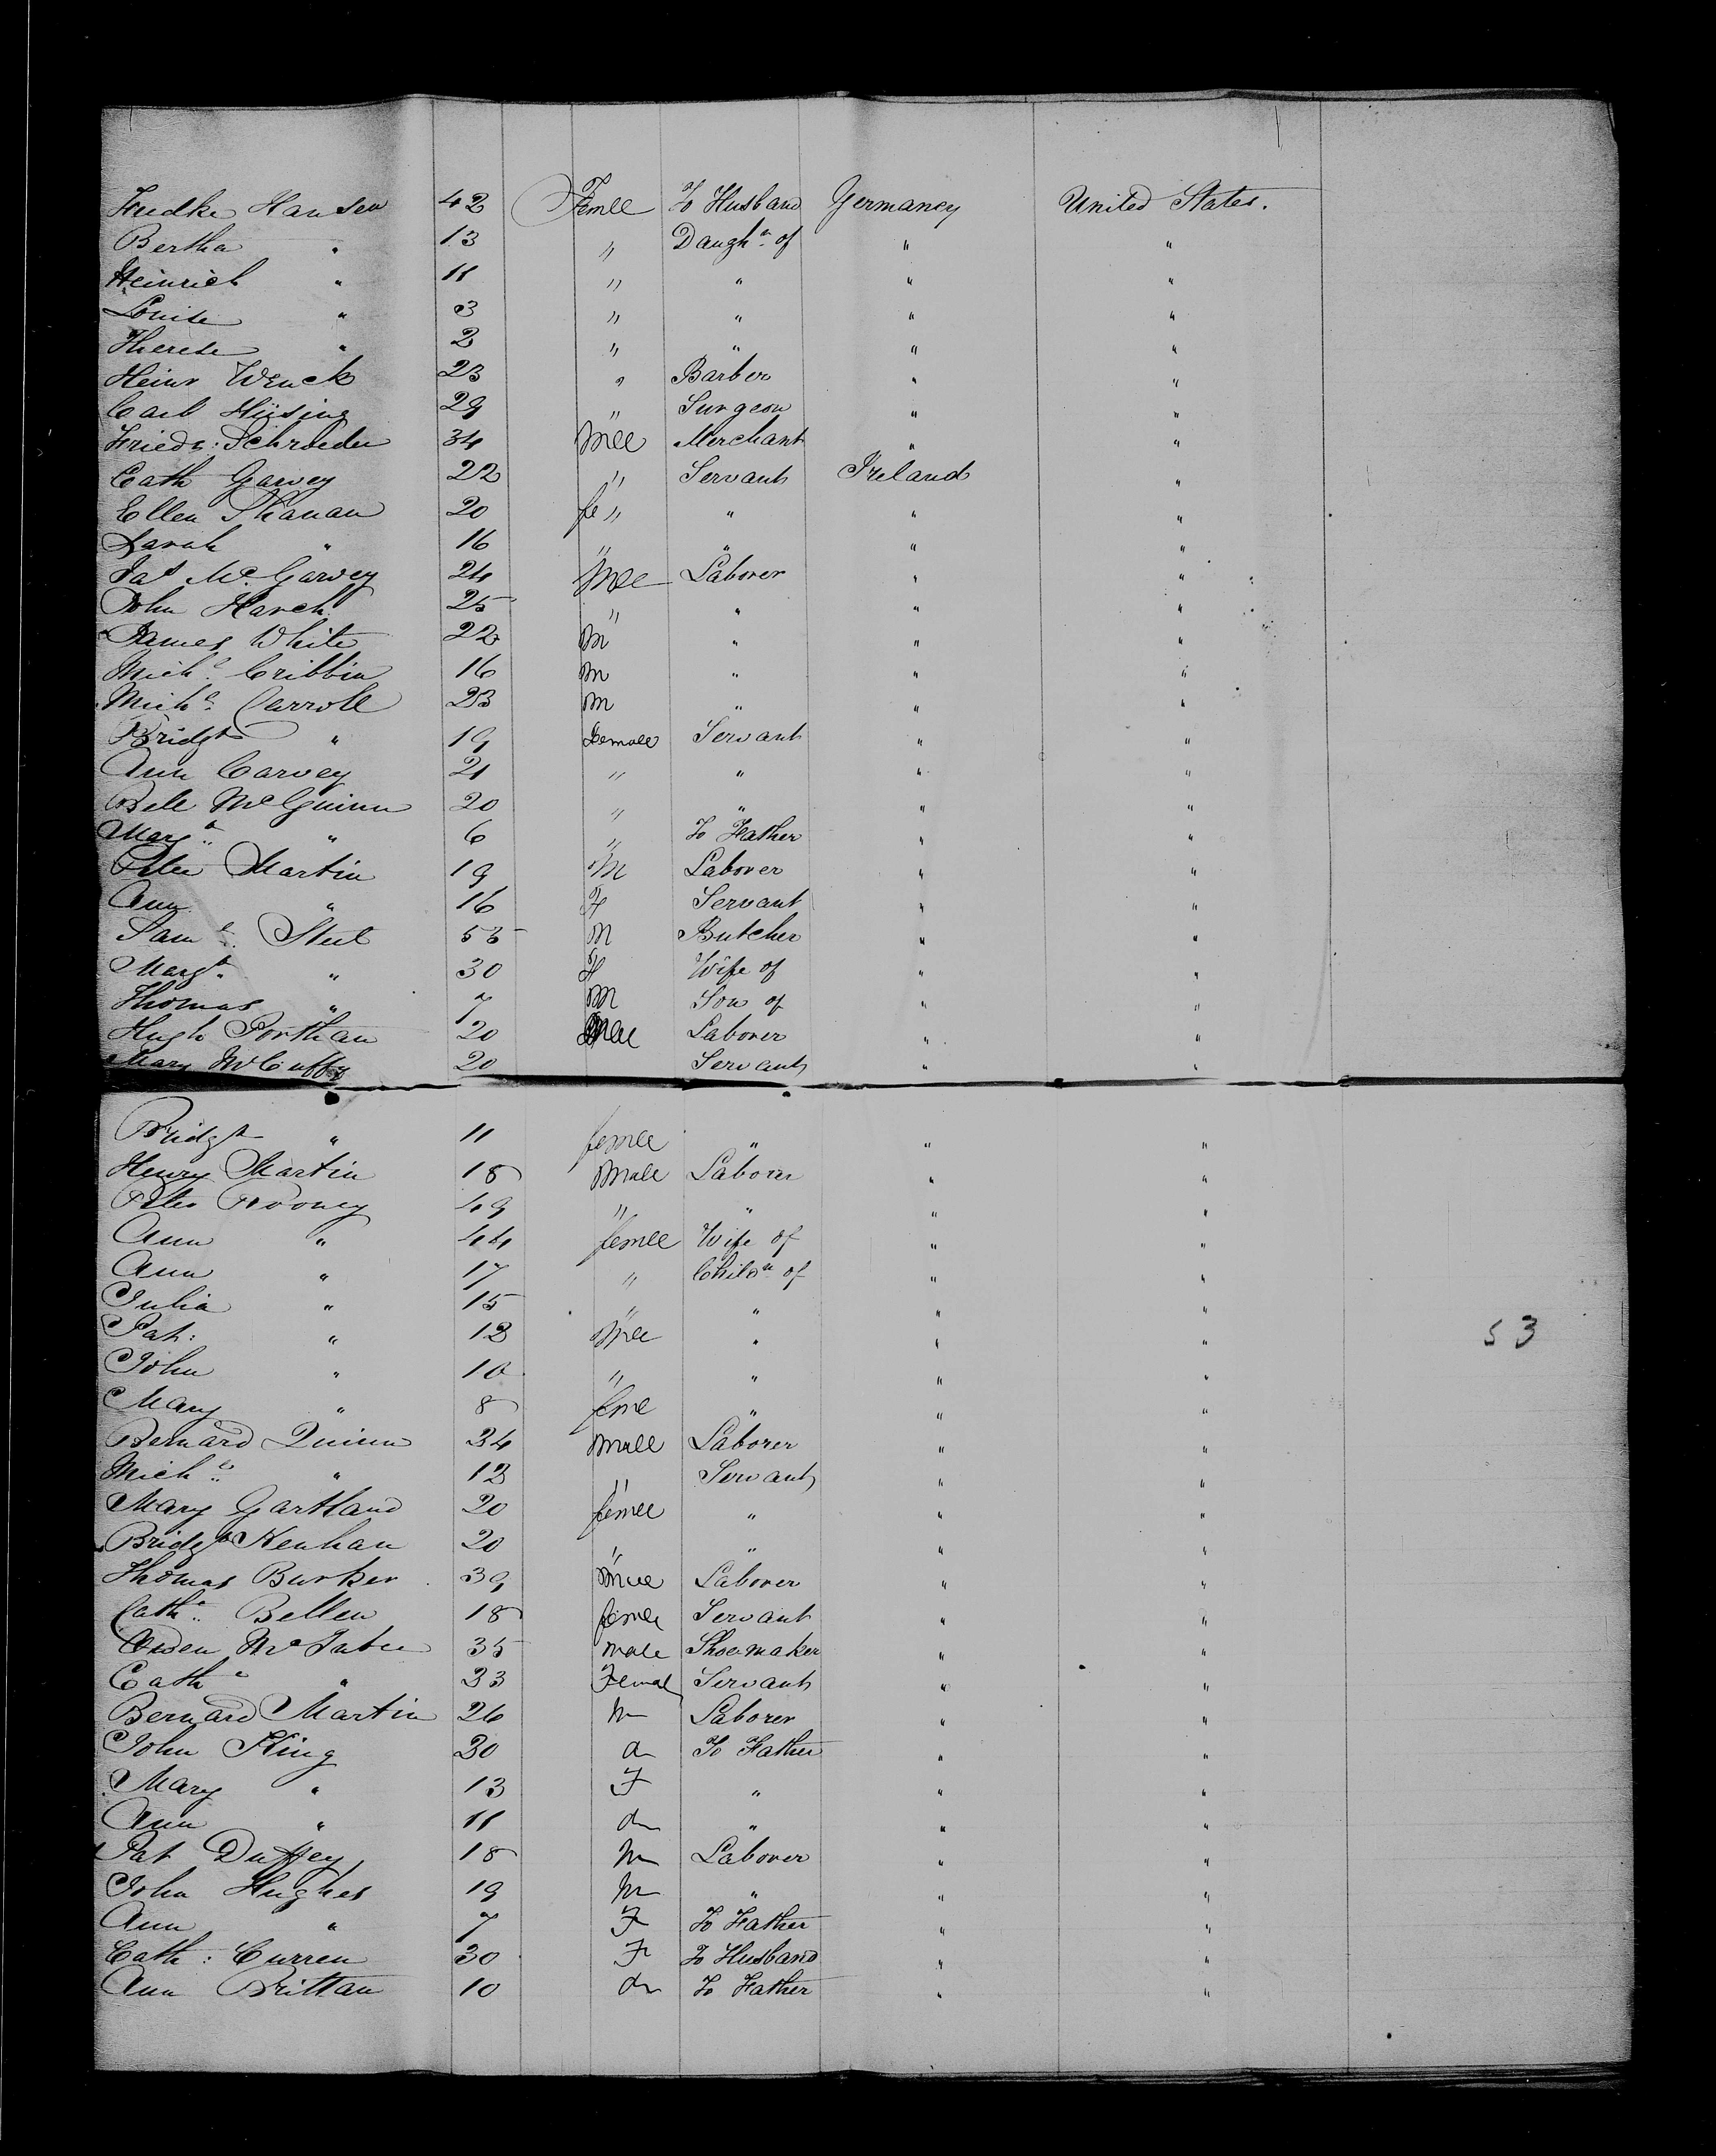 Hansen 42 Femle To Husband Germaney United States.
Bertha " 13 " Daughr. of " "
Heinrich " 11 " " " "
Louise " 3 " " " "
Therese " 2 " " " "
Heinr Wenck 23 " Barber " "
Carl Hüsing 29 " Surgeon " "
Friedr: Schroeder 34 Mle Merchant " "
Cath Garvey 22 " Servant Ireland "
Ellen Shanan 20 fe " " " "
Sarah " 16 " " " "
Jas McGarvey 24 Mle Laborer " "
John Harch 25 " " " "
James White 22 m " " "
Michl. Cribbin 16 m " " "
Michl. Carroll 23 m " " "
Bridgt " 19 Female Servant " "
Ann Carvey 21 " " " "
Bell McGuinn 20 " " " "
Margt. " 6 " To Father " "
Peter Martin 19 M Laborer " "
Ann " 16 F Servant " "
Saml. Steel 55 M Butcher " "
Margt. " 30 F Wife of " "
Thomas " 7 M Son of " "
Hugh Porthan 20 Male Laborer " "
Mary McCuffy 20 Servant " "
Bridgt " 11 femle " " "
Henry Martin 18 Male Laborer " "
Peter Rooney 49 " " " "
Ann " 44 femle Wife of " "
Ann " 17 " Childn of " "
Julia " 15 " " " "
Pat: " 12 Mle " " " 53
John " 10 " " " "
Mary " 8 feml " " "
Bernard Quinn 34 Male Laborer " "
Michl. " 12 " Servant " "
Mary Gartland 20 femle " " "
Bridgt Kenhan 20 " " " "
Thomas Burker 39 Mle Laborer " "
Cathe. Bellew 18 femle Servant " "
Owen 35 male Shoemaker " "
Cathe " 33 Female Servant " "
Bernard Martin 26 m Laborer " "
John King 30 do To Father " "
Mary " 13 F " " "
Ann " 11 do " " "
Pat Duffey 18 m Laborer " "
John Hughes 19 m " " "
Ann " 7 F To Father " "
Cath: Curren 30 F To Husband " "
Ann Brittan 10 do To Father " "